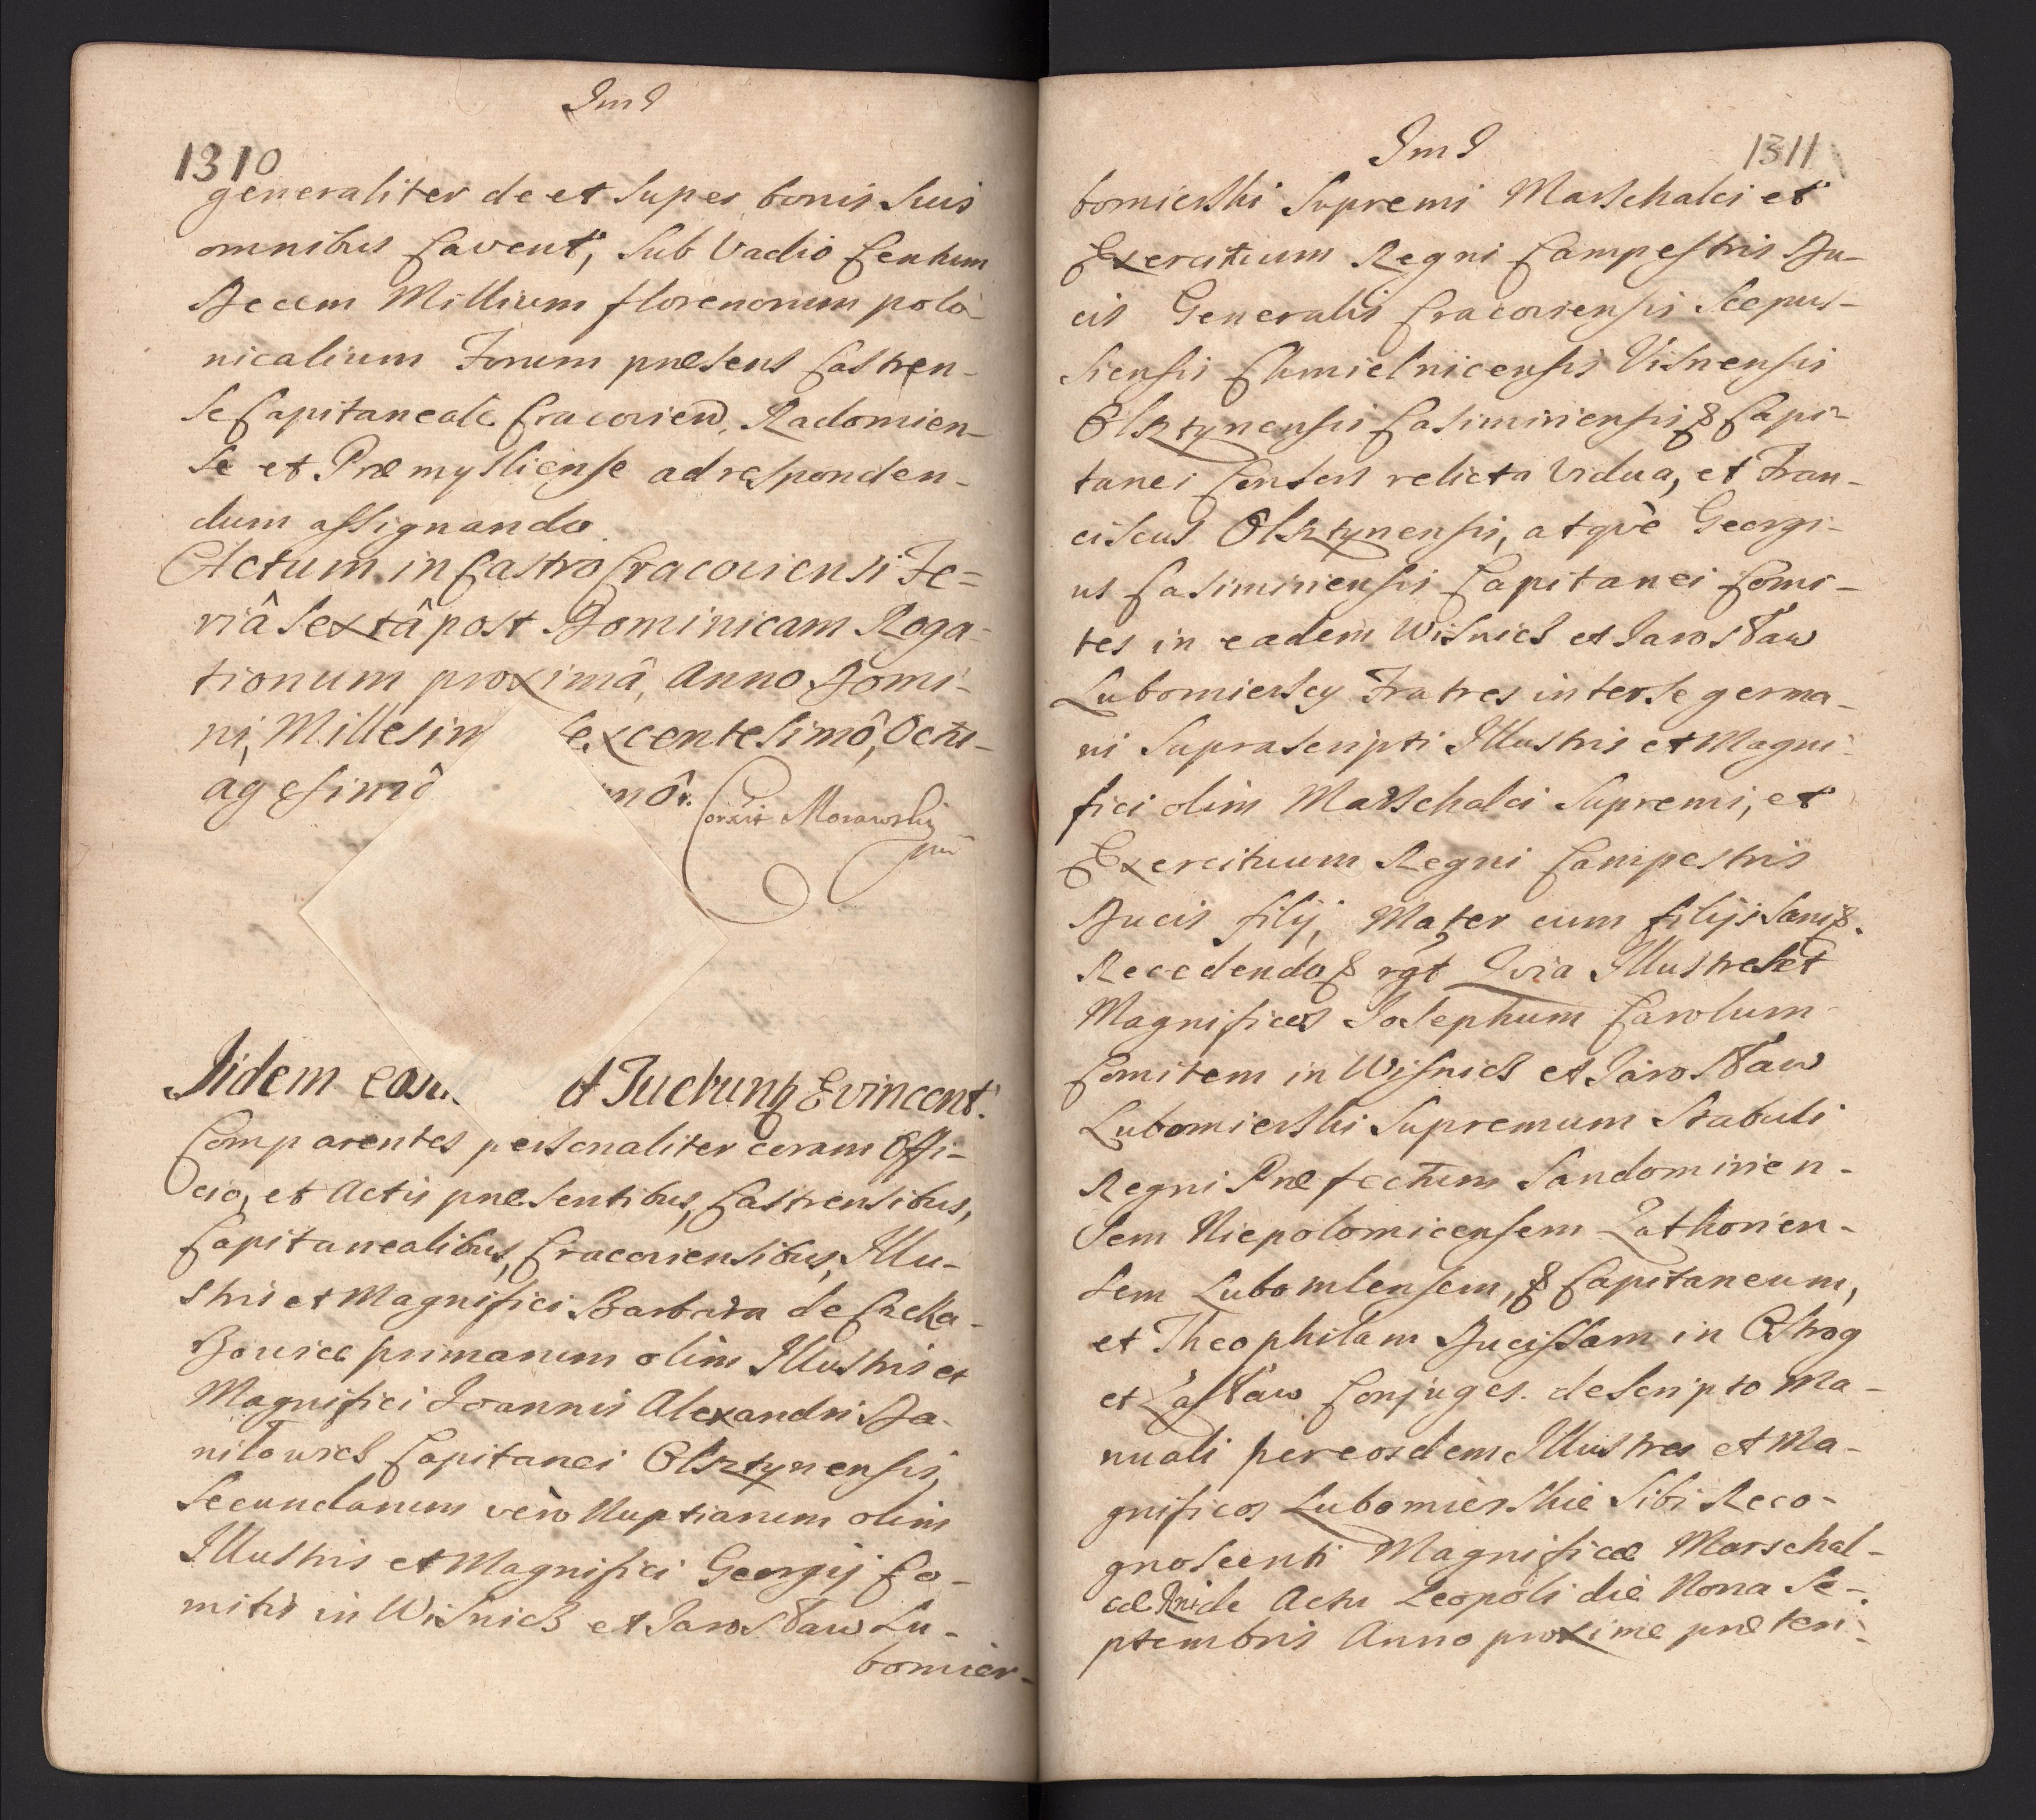 ImI
1310
generaliter de et super bonis suis
omnibus Cavent, sub Vadio Centum
Decem Millium florenorum polo-
nicalium Forum præsens Castren-
se Capitaneale Cracovien. Radomien-
se et Præmysliense ad responden-
dum assignando.
Actum in Castro Cracoviensi Fe=
riâ Sextâ post Dominicam Roga-
tionum proximâ, Anno Domi-
ni, Millesim excentesimô, Octu-
agesimô mô.
Corxit Morawski
mp
Iidem eosd d Tuchung Evincent.
Comparentes personaliter coram Offi-
cio, et Actis præsentibus, Castrensibus,
Capitanealibus, Cracoviensibus, Illu-
stris et Magnifici Barbara de
primarum olim Illustris et
Magnifici Joannis Alexandri Da-
niłowicz Capitanei Olsztynensis,
Secundarum verò Nuptiarum olim
Illustris et Magnifici Georgij Co-
mitis in Wisnicz et Jarosław Lu-
bomier-
ImI
1311
bomierski Supremi Marschalci et
Exercituum Regni Campestris Du-
cis Generalis Cracoviensis Scepus-
siensis Chmielnicensis Visnensis
Olsztynensis Casimiriensis & Capi-
tanei Consors relicta Vidua, et Fran-
ciscus Olsztynensis, atqvè Georgi-
us Casimiriensis Capitanei Comi-
tes in eadem Wisnicz et Jarosław
Lubomierscy Fratres inter se germa-
ni Suprascripti Illustris et Magni-
fici olim Marschalci Supremi, et
Exercituum Regni Campestris
Ducis filij, Mater cum filijs Sani &.
Recedendo & rgt Qvia Illustres et
Magnificos Josephum Carolum
Comitem in Wisnicz et Jarosław
Lubomierski Supremum Stabuli
Regni Præfectum Sandomirien-
sem Niepolomicensem Zathorien-
sem Lubomlensem, & Capitaneum,
et Theophilam Ducissam in Ostrog
et Zasław Conjuges. de scripto Ma-
nuali per eosdem Illustres et Ma-
gnificos Lubomierskie Sibi Reco-
gnoscenti Magnificæ Marschal-
cæ Rni de Actu Leopoli die Nona Se-
ptembris Anno proxime præteri-